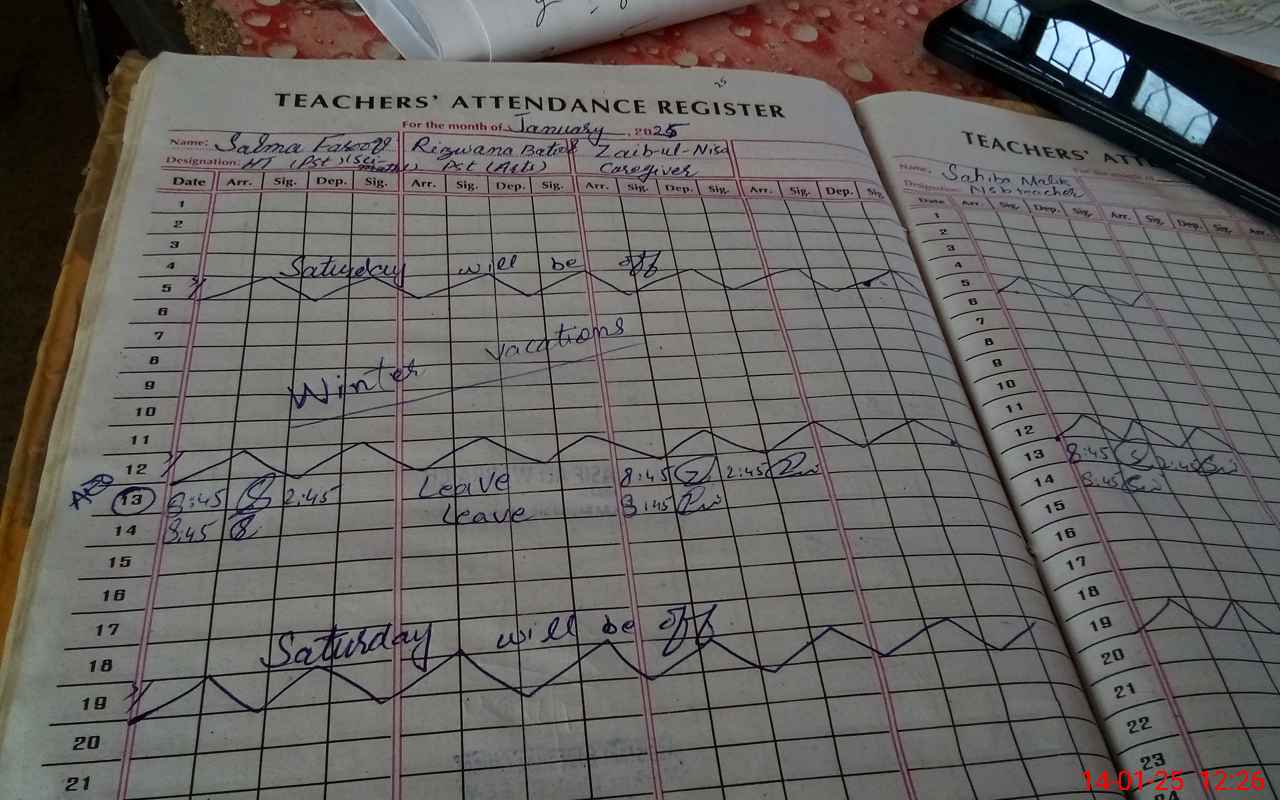 25
TEACHERS' ATTENDANCE REGISTER
For the month of January, 2025
Name: Salma Farooq Rizwana Batool Zaib-ul-Nisa
Designation: HT (Pst) (Sci-maths) Pst (Arts) Caregiver
Date Arr. Sig. Dep. Sig. Arr. Sig. Dep. Sig. Arr. Sig. Dep. Sig. Arr. Sig. Dep. Sig.
1
2
3
4 Saturday will be off
5
6
7
8 Winter vacations
9
10
11
12
13 8:45 2:45 Leave 8:45 2:45
14 8:45 Leave 8:45
15
16
17
18 Saturday will be off
19
20
21
TEACHERS' ATTE
Name: Sahiba Malik
Designation: Nsb teacher
Date Arr. Sig. Dep. Sig. Arr. Sig. Dep. Sig. Arr.
1
2
3
4
5
6
7
8
9
10
11
12
13 8:45 2:45
14 8:45
15
16
17
18
19
20
21
22
23
24
14-01-25 12:26